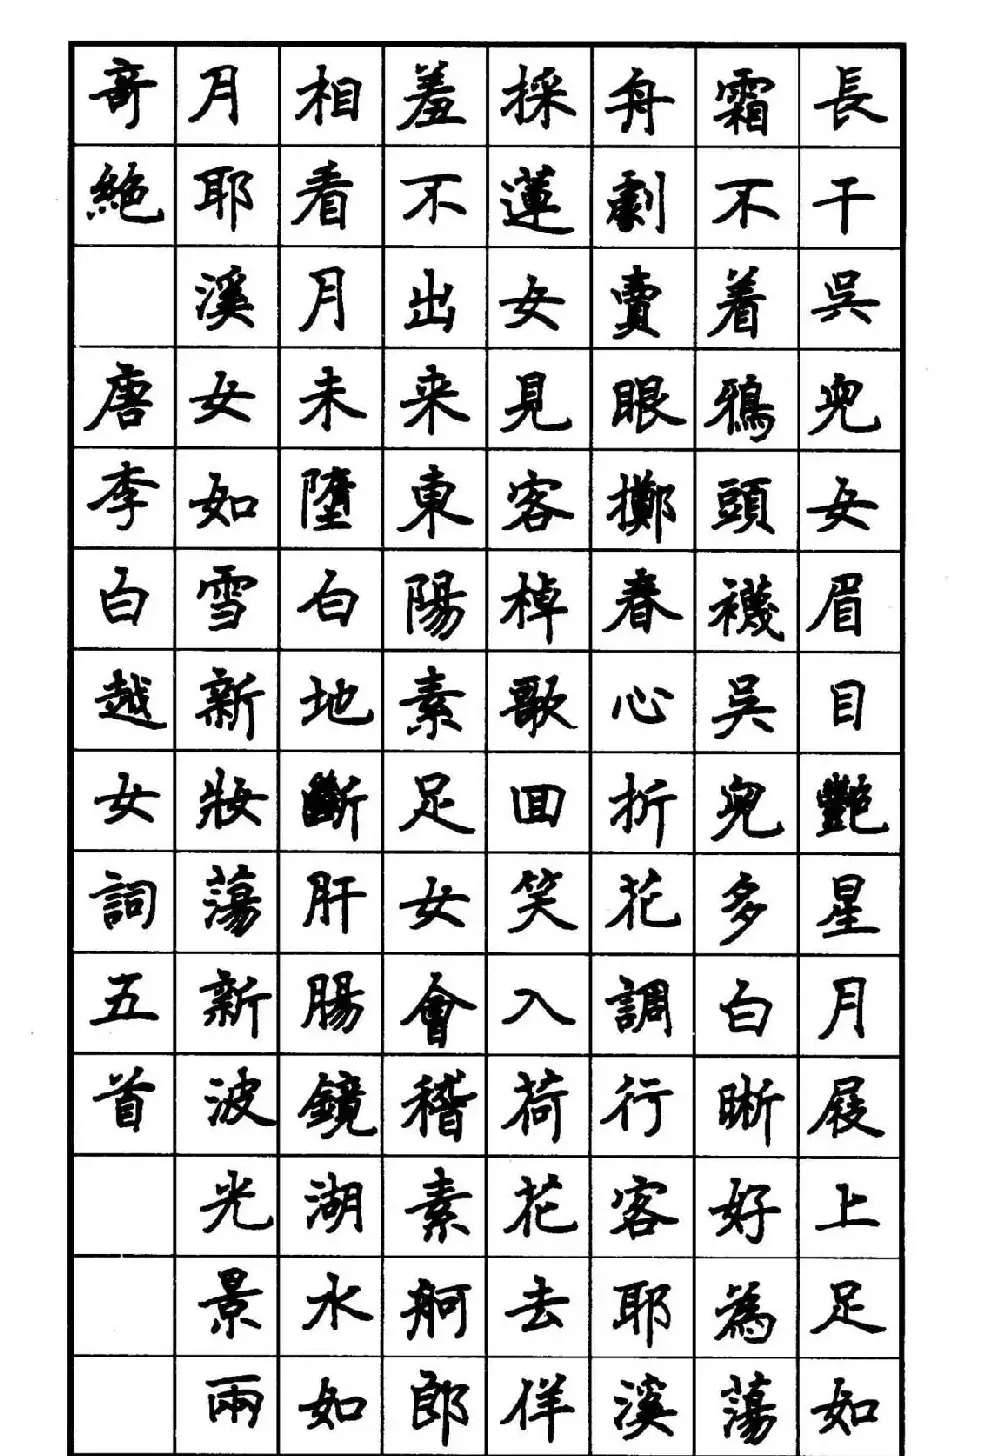 長干吳兒女眉目艷星月屐上足如
霜不着鴉頭襪吳兒多白晰好為蕩
舟劇賣眼擲春心折花調行客耶溪
採蓮女見客棹歌回笑入荷花去佯
羞不出来東陽素足女會稽素舸郎
相看月未墮白地斷肝腸鏡湖水如
月耶溪女如雪新妝蕩新波光景兩
奇絕 唐李白越女詞五首